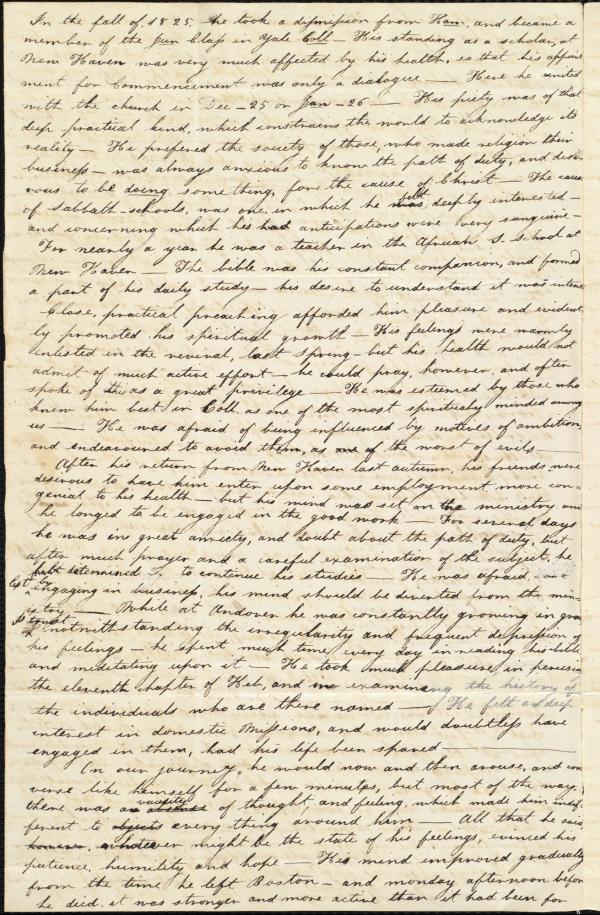 In the fall of 1825, he took a dismission from Ham, and became a
member of the Jun Class in Yale Coll — His standing as a scholar, at
New Haven was very much affected by his health, so that his appoint
ment for Commencement was only a dialogue — Here he united
with the church in Dec – 25 or Jan – 26 — His piety was of that
deep practical kind, which constrains the world to acknowledge its
reality — He prefered the society of those, who made religion their
business — was always anxious to know the path of duty, and desi
rous to be doing something, for the cause of Christ — The cause
of Sabbath-schools, was one, in which he was felt deeply interested —
and concerning which his had anticipations were very sanguine —
For nearly a year he was a teacher in the African S. School at
New Haven — The bible was his constant companion, and formed
a part of his daily study — his desire to understand it was intense
Close, practical preaching afforded him pleasure and evident
ly promoted his spiritual growth — His feelings were warmly
enlisted in the revival, last Spring – but his health would not
admit of much active effort — he could pray, however, and often
spoke of this as a great privilege — He was esteemed by those who
knew him best in Coll. as one of the most spiritually minded among
us — He was afraid of being influenced by motives of ambition,
and endeavoured to avoid them, as one of the worst of evils —
After his return from New Haven last autumn, his friends were
desirous to have him enter upon some employment more con-
genial to his health — but his mind was set on the ministry and
he longed to be engaged in the good work — For several days
he was in great anxiety, and doubt about the path of duty, but
after much prayer and a careful examination of the subject, he
felt determined to continue his studies — He was afraid,
lest by engaging in business, his mind should be diverted from the min-
istry — While at Andover he was constantly growing in grace
I trust notwithstanding the irregularity and frequent depression of
his feelings — he spent much time every day in reading his bible
and meditating upon it — He took much pleasure in perusing
the eleventh chapter of Heb, and in examining the history of
the individuals who are there named — He felt a deep
interest in domestic Missions, and would doubtless have
engaged in them, had his life been spared —
In our journey, he would now and then arouse, and con
verse like himself for a few minutes, but most of the way,
there was an absence vacuity of thought and feeling, which made him indif-
ferent to objects every thing around him — All that he said
however, whatever might be the state of his feelings, evinced his
patience, humility and hope — His mind improved gradually
from the time he left Boston – and monday afternoon before
he died, it was stronger and more active than it had been for